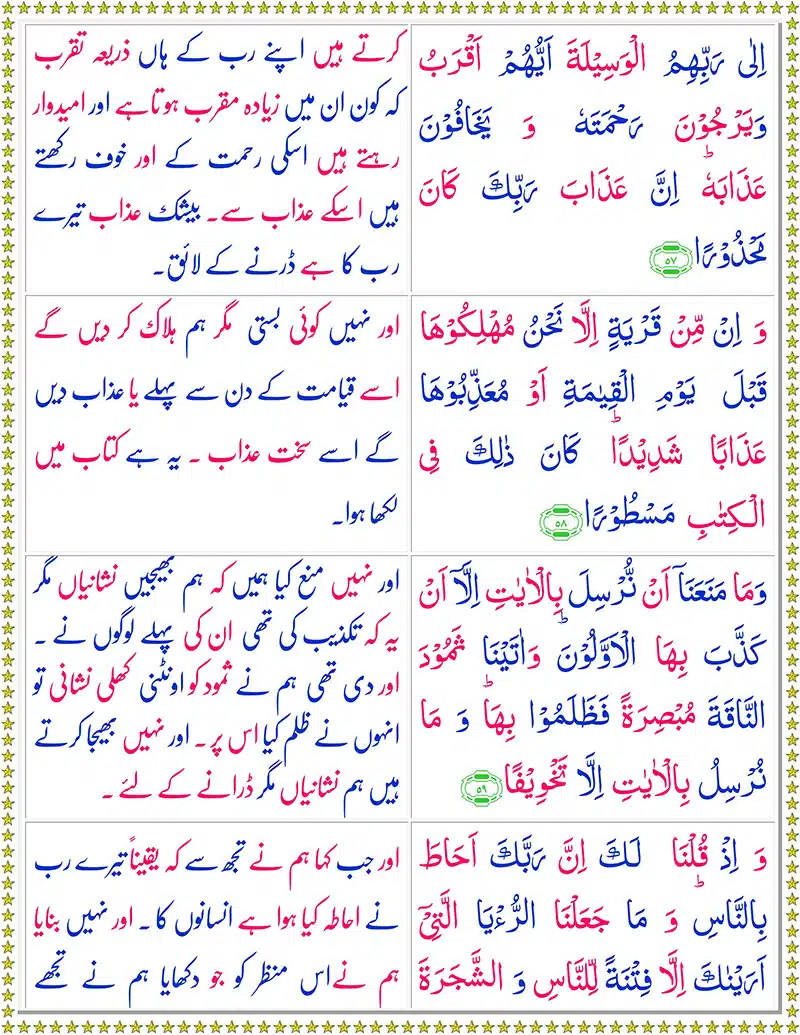 اِلٰى رَبِّهِمُ الْوَسِيْلَةَ اَيُّهُمْ اَقْرَبُ
وَيَرْجُوْنَ رَحْمَتَهٗ وَ يَخَافُوْنَ
عَذَابَهٗ ؕ اِنَّ عَذَابَ رَبِّكَ كَانَ
مَحْذُوْرًا ۵۷
کرتے ہیں اپنے رب کے ہاں ذریعہ تقرب
کہ کون ان میں زیادہ مقرب ہوتاہے اور امیدوار
رہتے ہیں اسکی رحمت کے اور خوف رکھتے
ہیں اسکے عذاب سے۔ بیشک عذاب تیرے
رب کا ہے ڈرنے کے لائق۔
وَ اِنْ مِّنْ قَرْيَةٍ اِلَّا نَحْنُ مُهْلِكُوْهَا
قَبْلَ يَوْمِ الْقِيٰمَةِ اَوْ مُعَذِّبُوْهَا
عَذَابًا شَدِيْدًا ؕ كَانَ ذٰلِكَ فِى
الْكِتٰبِ مَسْطُوْرًا ۵۸
اور نہیں کوئی بستی مگر ہم ہلاک کر دیں گے
اسے قیامت کے دن سے پہلے یا عذاب دیں
گے اسے سخت عذاب ۔ یہ ہے کتاب میں
لکھا ہوا۔
وَمَا مَنَعَنَاۤ اَنْ نُّرْسِلَ بِالْاٰيٰتِ اِلَّاۤ اَنْ
كَذَّبَ بِهَا الْاَوَّلُوْنَ ؕ وَاٰتَيْنَا ثَمُوْدَ
النَّاقَةَ مُبْصِرَةً فَظَلَمُوْا بِهَا ؕ وَ مَا
نُرْسِلُ بِالْاٰيٰتِ اِلَّا تَخْوِيْفًا ۵۹
اور نہیں منع کیا ہمیں کہ ہم بھیجیں نشانیاں مگر
یہ کہ تکذیب کی تھی ان کی پہلے لوگوں نے ۔
اور دی تھی ہم نے ثمود کو اونٹنی کھلی نشانی تو
انہوں نے ظلم کیا اس پر۔ اور نہیں بھیجا کرتے
ہیں ہم نشانیاں مگر ڈرانے کے لئے ۔
وَ اِذْ قُلْنَا لَكَ اِنَّ رَبَّكَ اَحَاطَ
بِالنَّاسِ ؕ وَ مَا جَعَلْنَا الرُّءْيَا الَّتِىْۤ
اَرَيْنٰكَ اِلَّا فِتْنَةً لِّلنَّاسِ وَ الشَّجَرَةَ
اور جب کہا ہم نے تجھ سے کہ یقیناً تیرے رب
نے احاطہ کیا ہوا ہے انسانوں کا۔ اور نہیں بنایا
ہم نے اس منظر کو جو دکھایا ہم نے تجھے